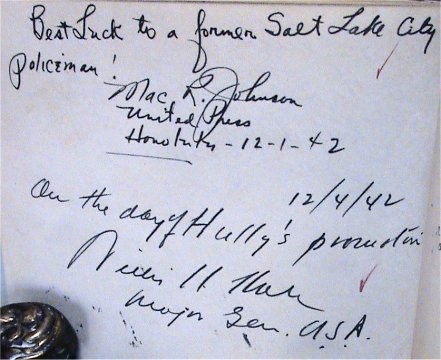 Best Luck to a former Salt Lake City
Policeman!
Mac R. Johnson
United Press
Honolulu - 12-1-42
12/4/42
On the day of Hully's promotion
Willis H Hale
Major Gen. U.S.A.